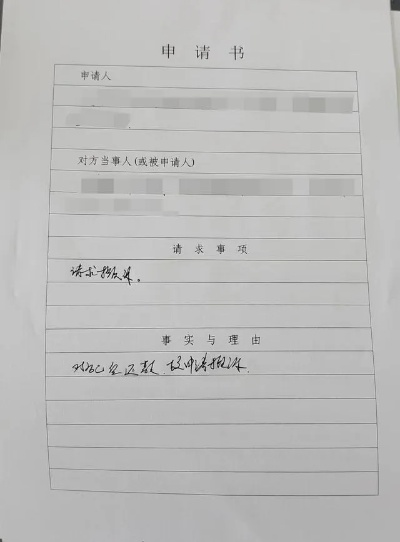 申请书
申请人
对方当事人(或被申请人)
请求事项
请求撤诉。
事实与理由
对方已全还款,故申请撤诉.